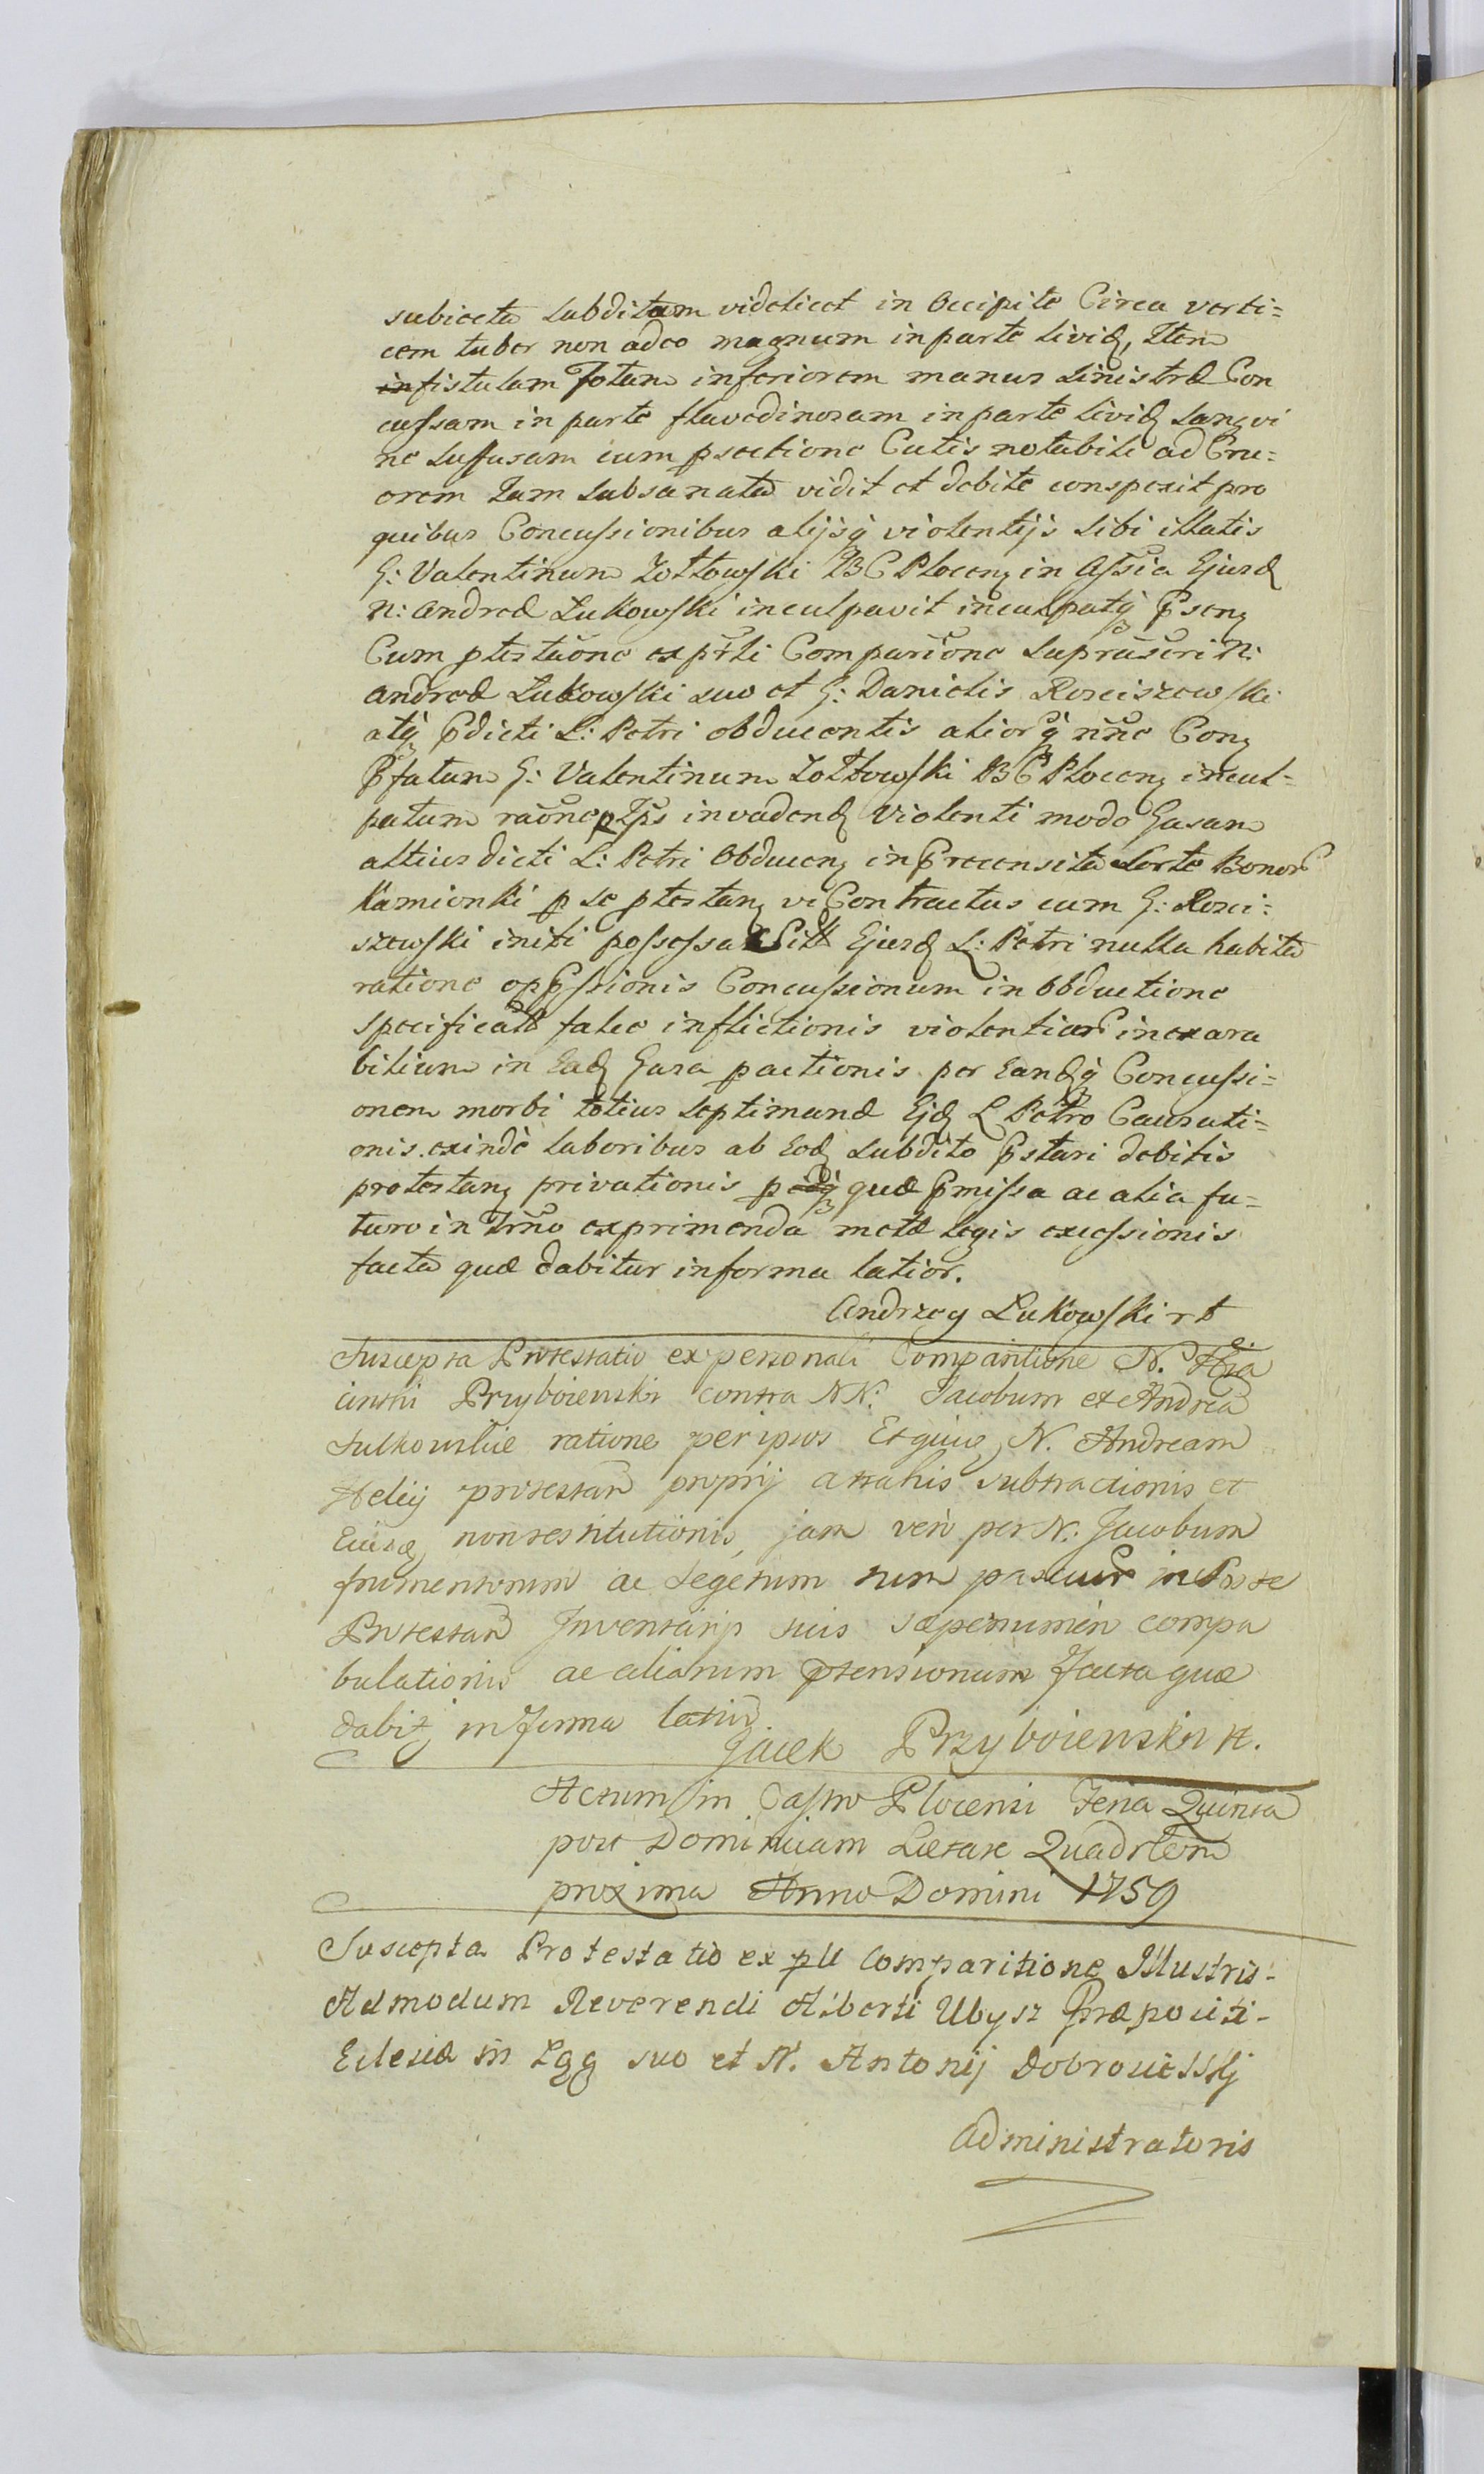 subiecta subditam videlicet in Occipite Circa verti=
cem tuber non adeo magnum in parte livid, Item
fistulam Totam inferiorem manus sinistræ Con
cussam in parte flavedinosam in parte livid sangvi
ne suffusam cum psectione Cutis notabili ad Cru=
orem Iam subsanata vidit et debite conspexit pro
quibus Concussionibus alijsq violentijs sibi illatis
G: Valentinum Zołtowski BC Plocen in Assia Ejusd
N: Andreæ Łukowski inculpavit inculpatq psen
Cum ptestaone ex prli Comparione supra N:
Andreæ Łukowski suo et G: Danielis Rosciszewski
atq pdicti L: Petri obducentis aliorq nne Con
pfatum G: Valentinum Zołtowski BC Plocen incul=
patum raone invadend violenti modo Gasam
altius dicti L: Petri Obducen in precensita Sorte Bonor
Kamionki p se ptestan vi Contractus cum G: Rosci=
szewski initi possessa Ejusd L: Petri nulla habita
ratione oppssionis Concussionum in Obductione
specificat talee inflictionis violentiar inexara
bilium in Ead Gasa pactionis per Eandq Concussi=
onem morbi totius septimanæ Ejd L Petro Causati=
onis exindè laboribus ab Eod subdito pstari debitis
protestan privationis quæ pmissa ac alia fu=
turo in Trno exprimenda metæ legis excessionis
facta quæ dabitur informa latior.
Andrzey Łukowski
Suscepta Protestatio ex personali Comparitione N. Hia
cinthi Przyboienski contra NN: Jacobum et Andrea
Sulkowskie ratione per ipsos Esquie N. Andream
protestan proprij arrahis subtractionis et
Eiusd nonrestitutionis, jam verò per N: Jacobum
frumentorum ac segetum tum pascuor in Sorte
Protestan Inventarijs suis sæpenumero compa
bulationis ac aliarum ptensionum Facta quæ
dabit in forma latior.
Jacek Przyboienski
Actum in Castro Plocensi Feria Quinta
post Dominicam Lætare Quadrlem
proxima Anno Domini 1759
Suscepta Protestatio ex pli Comparitione Illustris-
Admodum Reverendi Alberti Ubysz Præpositi-
Eclesiæ in Łęg suo et N. Antonij
Administratoris